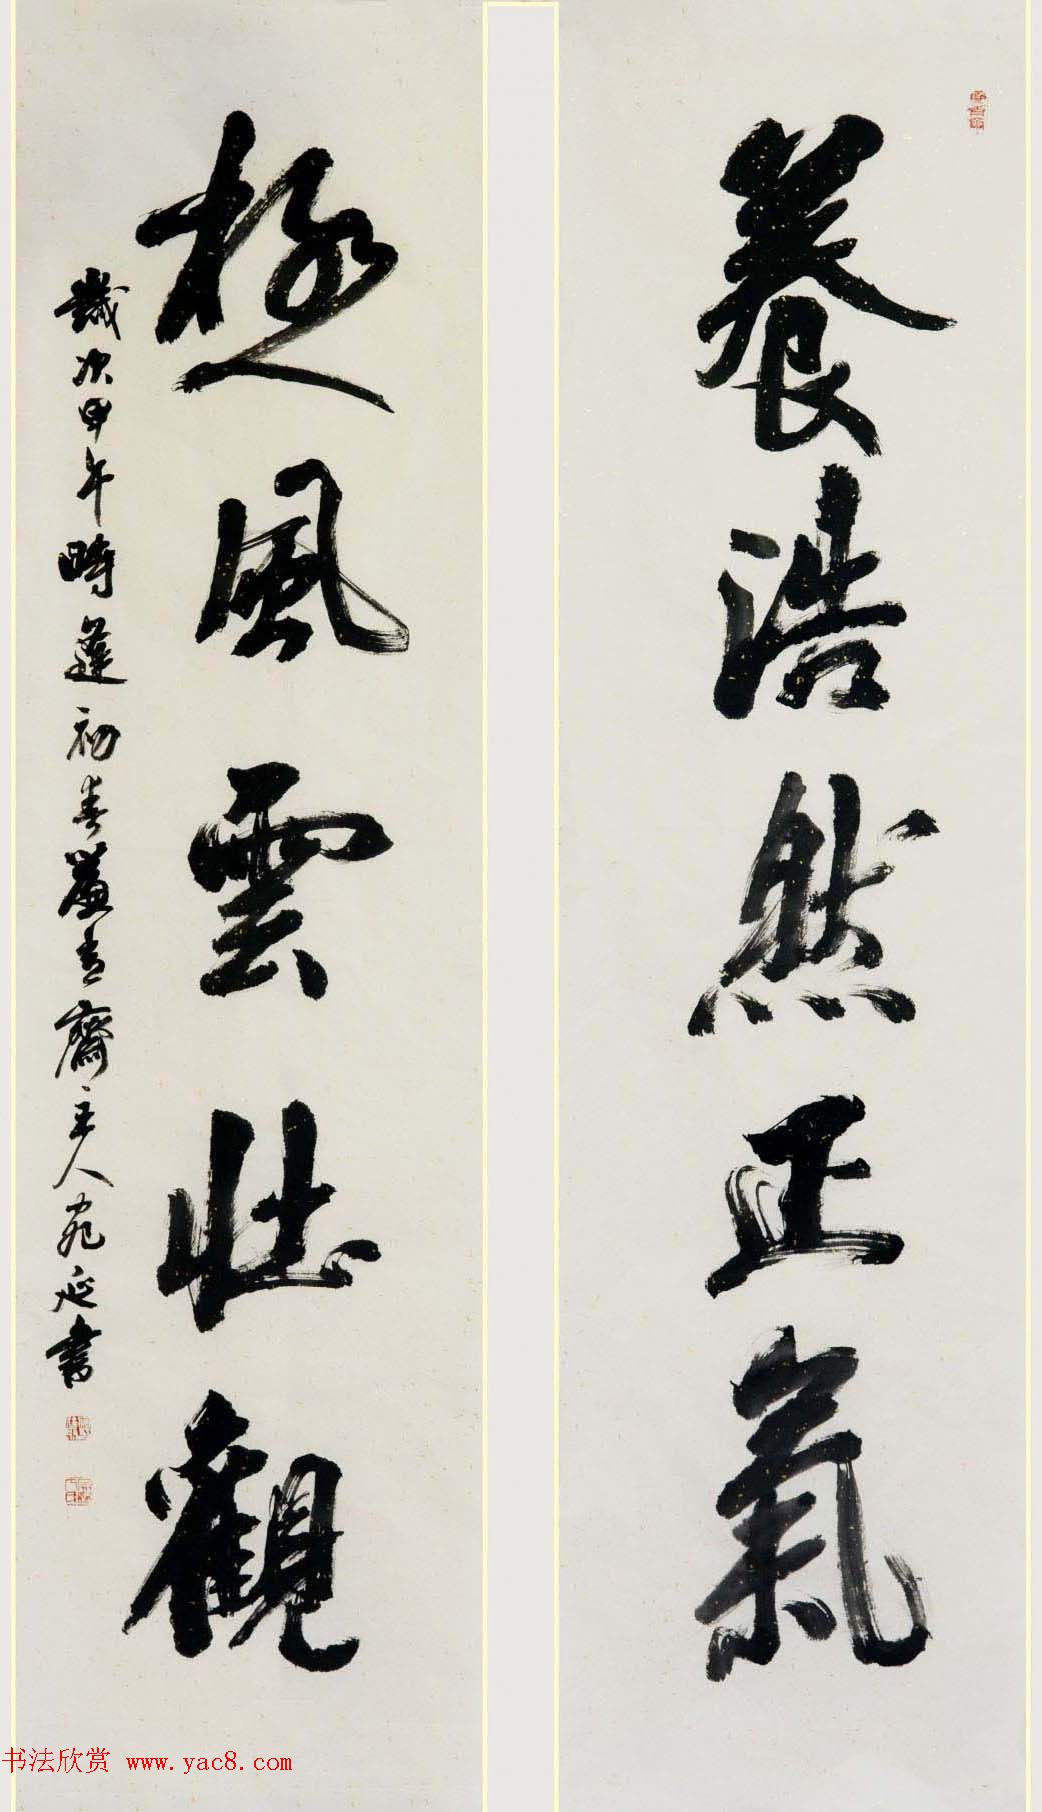 養浩然正氣
極風雲壯觀
歲次甲午時逢初春蘆青齋主人宛延書
书法欣赏 www.yac8.com